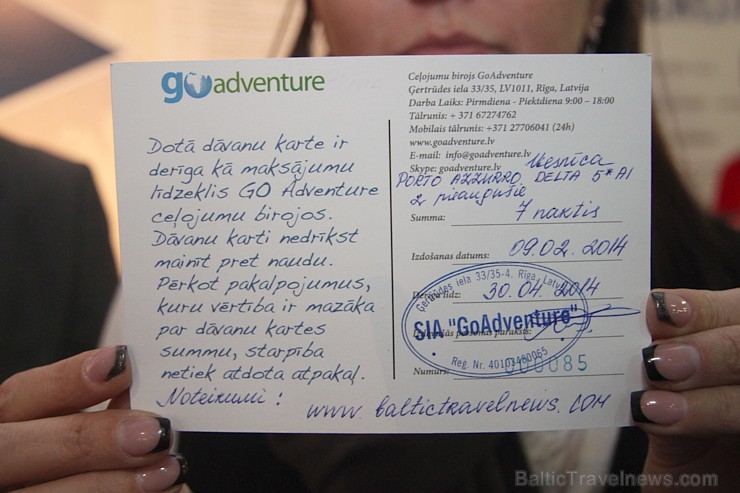 goadventure
Dotā dāvanu karte ir
derīga kā maksājumu
līdzeklis GO Adventure
ceļojumu birojos.
Dāvanu karti nedrīkst
mainīt pret naudu.
Pērkot pakalpojumus,
kuru vērtība ir mazāka
par dāvanu kartes
summu, starpība
netiek atdota atpakaļ.
Noteikumi: www.baltictravelnews.com
Ceļojumu birojs GoAdventure
Ģertrūdes iela 33/35, LV1011, Rīga, Latvija
Darba Laiks: Pirmdiena - Piektdiena 9:00 – 18:00
Tālrunis: + 371 67274762
Mobilais tālrunis: +371 27706041 (24h)
www.goadventure.lv
E-mail: info@goadventure.lv
Skype: goadventure.lv
Viesnīca
PORTO AZZURRO DELTA 5* AI
2 pieaugušie
Summa: 7 naktis
Izdošanas datums: 09.02.2014
līdz: 30.04.2014
personas paraksts:
Numurs: 000085
Ģertrūdes iela 33/35-4, Rīga, Latvija
SIA "GoAdventure"
Reģ. Nr. 40103460055
BalticTravelNews.com